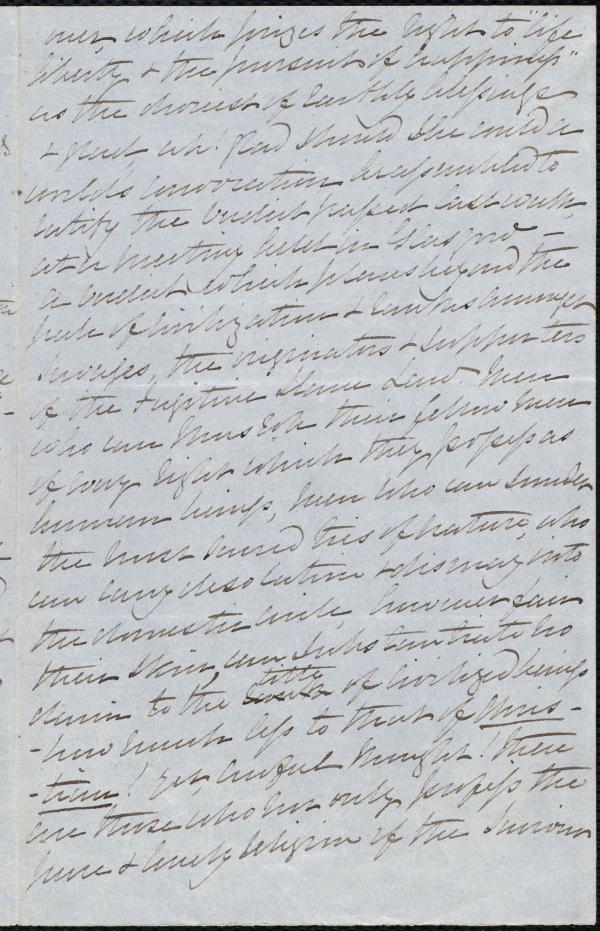 over, which prizes the right to "life
liberty & the pursuit of happiness"
as the choicest of Earthly blessings
& great, ah! Glad should she could a
world's convocation be assembled to
ratify the verdict passed last week,
at a meeting held in Glasgow –
a verdict which places beyond the
pale of civilization & ranks amongst
savages, the originators & supporters
of the Fugitive Slave Law. Men
who can thus rob their fellow men
of every right which they possess as
human beings, men who can sunder
the most sacred ties of nature, who
can carry desolation & dismay into
the domestic circle, however fair
their skin, can substantiate no
claim to the title of civilized beings
– how much less to that of Chris-
-tian! Yet, awful thought! there
are those who not only profess the
pure & lovely religion of the Saviour